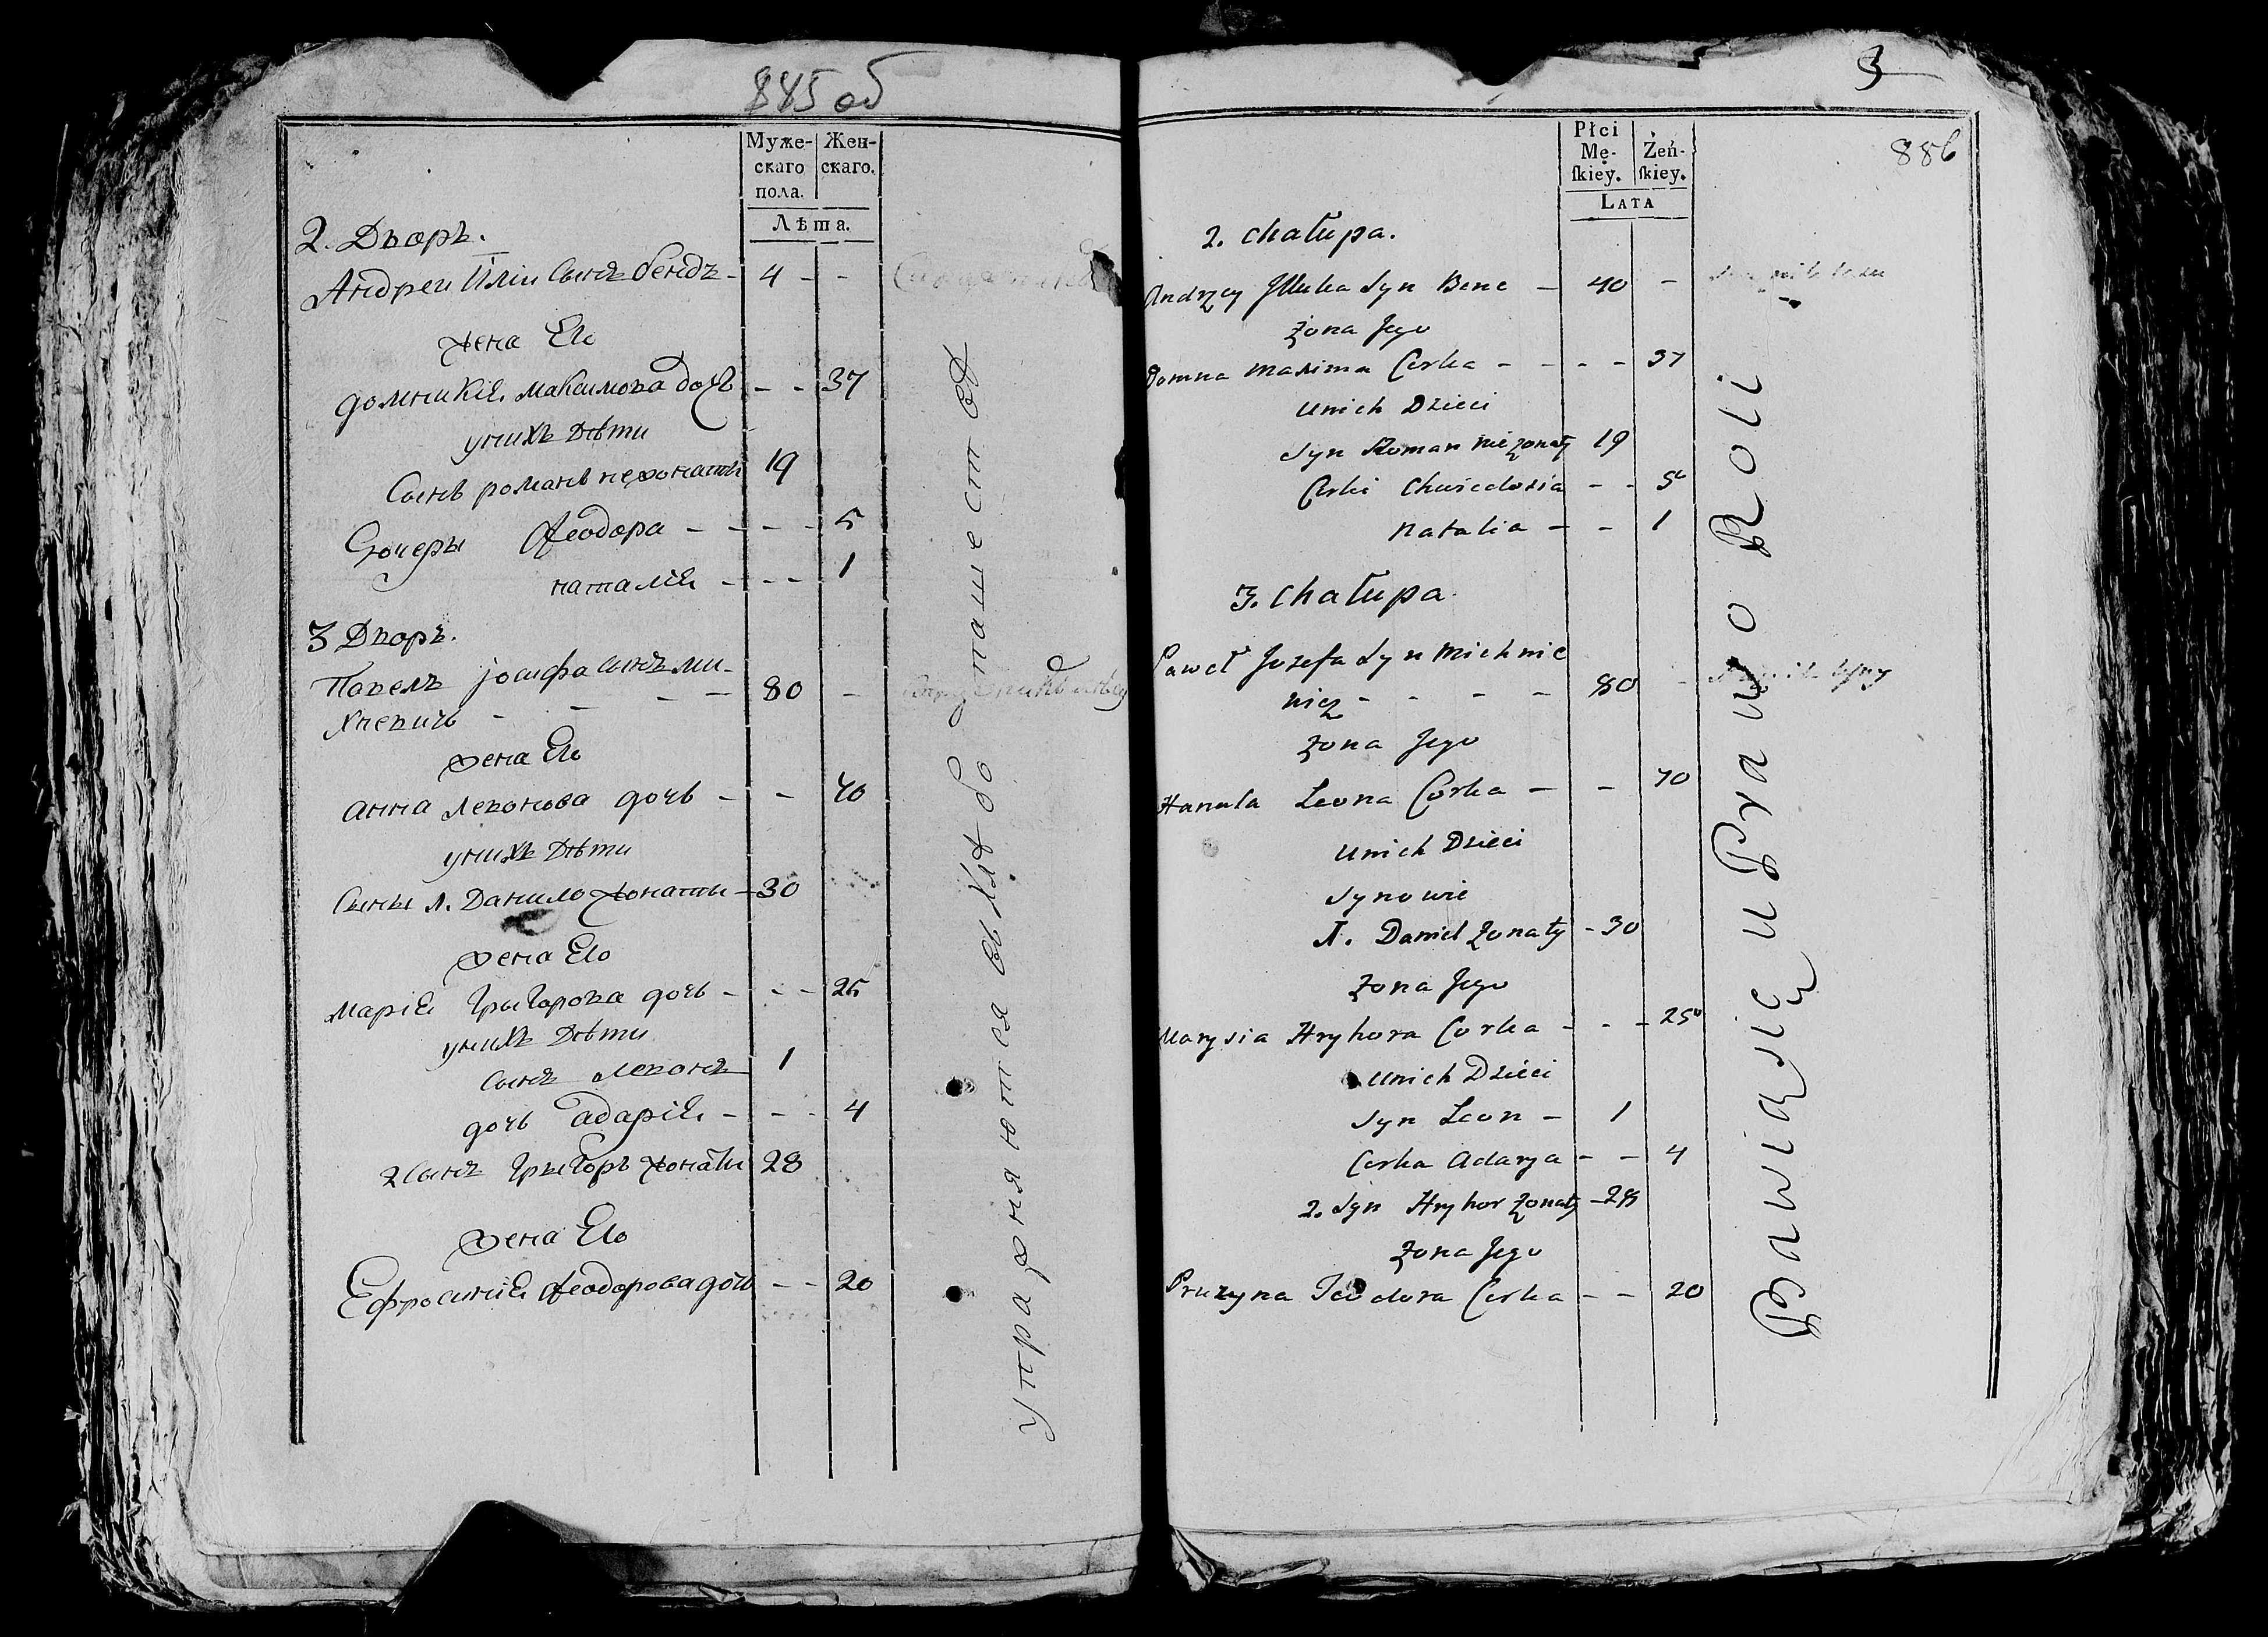 885 об
Муже-
скаго
пола.
Жен-
скаго.
Лѣта.
2. Дворъ.
Андреи Иліи Сынъ бендъ - 4 - -
жена Ело
домникіѧ максимова дочь - - 37
унихъ Дѣти
Сынъ романъ нежонаты 19
Дочеры Феодора - - - - 5
наталіѧ - - - 1
3 Дворъ.
Павелъ јосифа сынъ ми-
хневичъ - - - - 80 -
жена Ело
анна левонова дочь - - 70
унихъ Дѣти
Сыны 1. Данило жонаты - 30
жена Ело
маріѧ Грыгорова дочь - - - 25
унихъ Дѣти
сынъ левонъ 1
дочь адаріѧ - - - 4
2 Сынъ Грыгоръ жонаты 28
жена Ело
Ефросиніѧ Феодорова дочь - - 20
упражняются въ хлѣбопашествѣ
3
886
Płci
Mę-
ſkiey.
Żeń-
ſkiey.
LATA
2. chałupa.
Andrzey Illuka Syn Bene - 40 -
żona Jego
Domna maxima Corka - - - - 37
unich Dzieci
Syn Roman nieżonaty 19
Corki Chwiedosia - - 5
Natalia - - 1
3. chałupa
Paweł Jozefa Syn Michnie
wicz - - - - 80 -
żona Jego
Hanula Leona Corka - - 70
unich Dzieci
Synowie
1. Daniel żonaty - 30
żona Jego
Marysia Hryhora Corka - - - 25
unich Dzieci
Syn Leon - 1
Corka Adarya - - 4
2. Syn Hryhor żonaty - 28
żona Jego
Pruzyna Teodora Corka - - 20
Bawią się uPrawo Roli